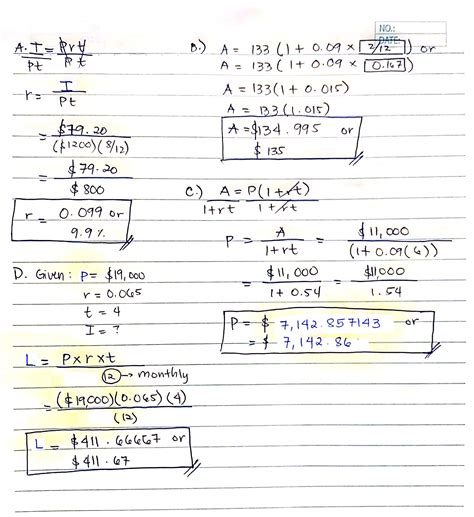 NO.:
DATE:
A. I = Prt
Pt Pt
r = I
Pt
= $79.20
($1200)(8/12)
= $79.20
$800
r = 0.099 or
9.9%
B.) A = 133 (1 + 0.09 × 2/12) or
A = 133 (1 + 0.09 × 0.167)
A = 133 (1 + 0.015)
A = 133 (1.015)
A = $134.995 or
$135
C.) A = P(1+rt)
1+rt 1+rt
P = A = $11,000
1+rt (1+0.09(6))
= $11,000 = $11,000
1+0.54 1.54
P = $ 7,142.857143 or
= $ 7,142.86
D. Given: P= $19,000
r = 0.065
t = 4
I = ?
L = P×r×t
12 → monthly
= ($19,000)(0.065)(4)
(12)
L = $411.66667 or
$411.67